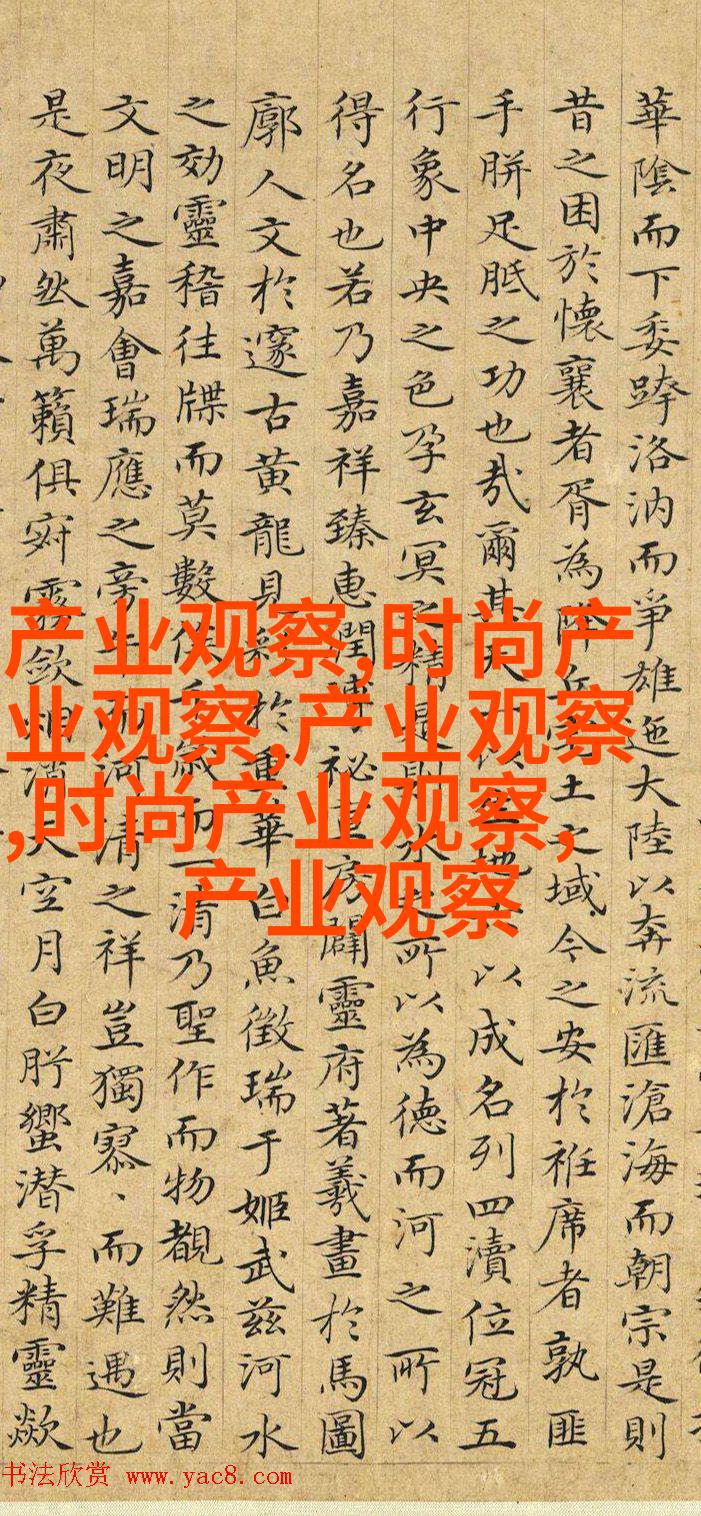 華陰而下委跨洛汭而爭雄迤大陸以奔流匯滄海而朝宗是則
昔之困於懷襄者胥為降丘宅土之域今之安於袵席者孰匪
手胼足胝之功也哉爾其天以地以成名列四瀆位冠五
行象中央之色孕玄冥之精是則水之所以為德而河之所以
得名也若乃嘉祥臻惠潤溥祕房闢靈府著羲畫於馬圖
廓人文於邃古黃龍見彩於重華白魚徵瑞于姬武茲河水
之効靈稽往牒而莫數俟千歲而一清乃聖作而物覩然則當
文明之嘉會瑞應之旁午河清之祥豈獨寡、而難遇也
是夜肅然萬籟俱寂霧歛烟消天空月白肸蠁潛孚精靈歘
产业观察,时尚产
业观察,产业观察
,时尚产业观察,
产业观察
书法欣赏 www.yac8.com